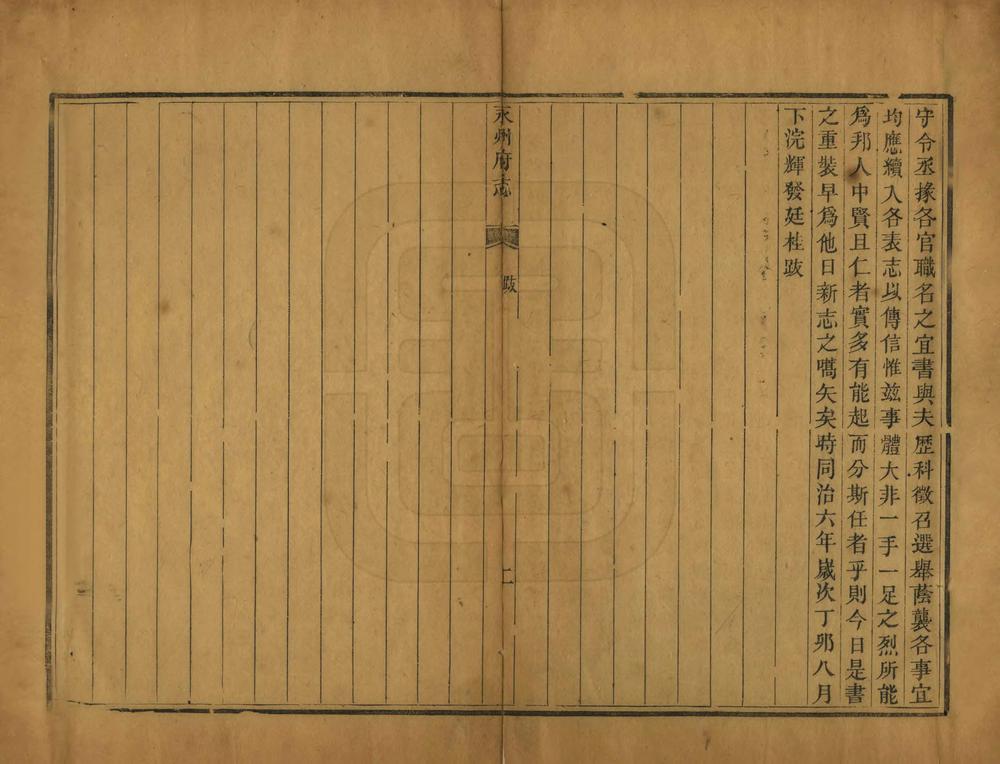 守令丞掾各官職名之宜書與夫歷科徵召選舉蔭襲各事宜
均應續入各表志以傳信惟兹事體大非一手一足之烈所能
爲邦人中賢且仁者實多有能起而分斯任者乎則今日是書
之重裝早爲他日新志之嚆矢矣時同治六年歲次丁卯八月
下浣輝發廷桂跋
永州府志
跋
二